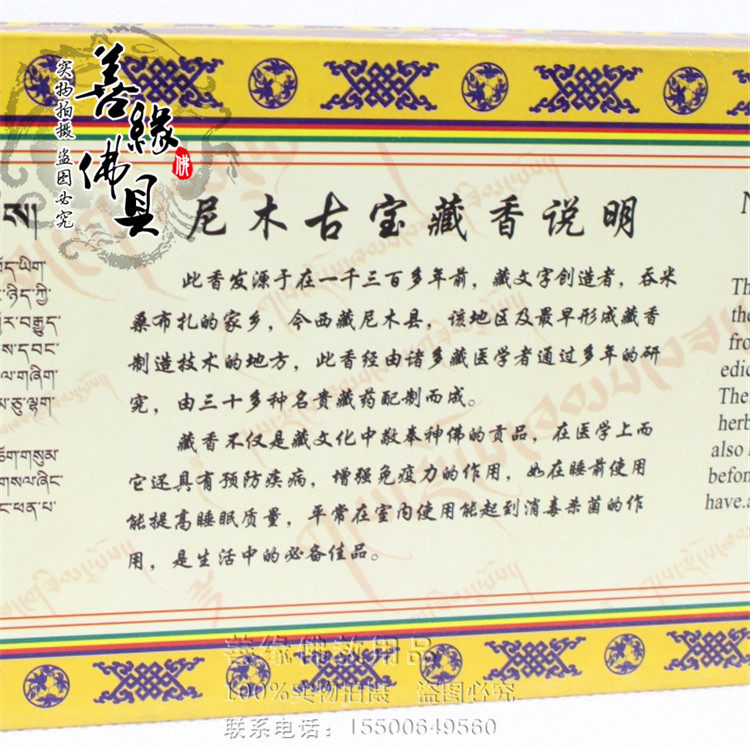 善缘佛具
佛
实物拍摄 盗图必究
尼木古宝藏香说明
此香发源于在一千三百多年前，藏文字创造者，吞米
桑布扎的家乡，令西藏尼木县，该地区及最早形成藏香
制造技术的地方，此香经由诸多藏医学者通过多年的研
究，由三十多种名贵藏药配制而成。
藏香不仅是藏文化中敬奉神佛的贡品，在医学上而
它还具有预防疾病，增强免疫力的作用，如在睡前使用
能提高睡眠质量，平常在室内使用能起到消毒杀菌的作
用，是生活中的必备佳品。
N
Th
the
fro
edic
The
herb
also
befon
have.a
善缘佛教用品
100%实物拍摄 盗图必究
联系电话：15500649560